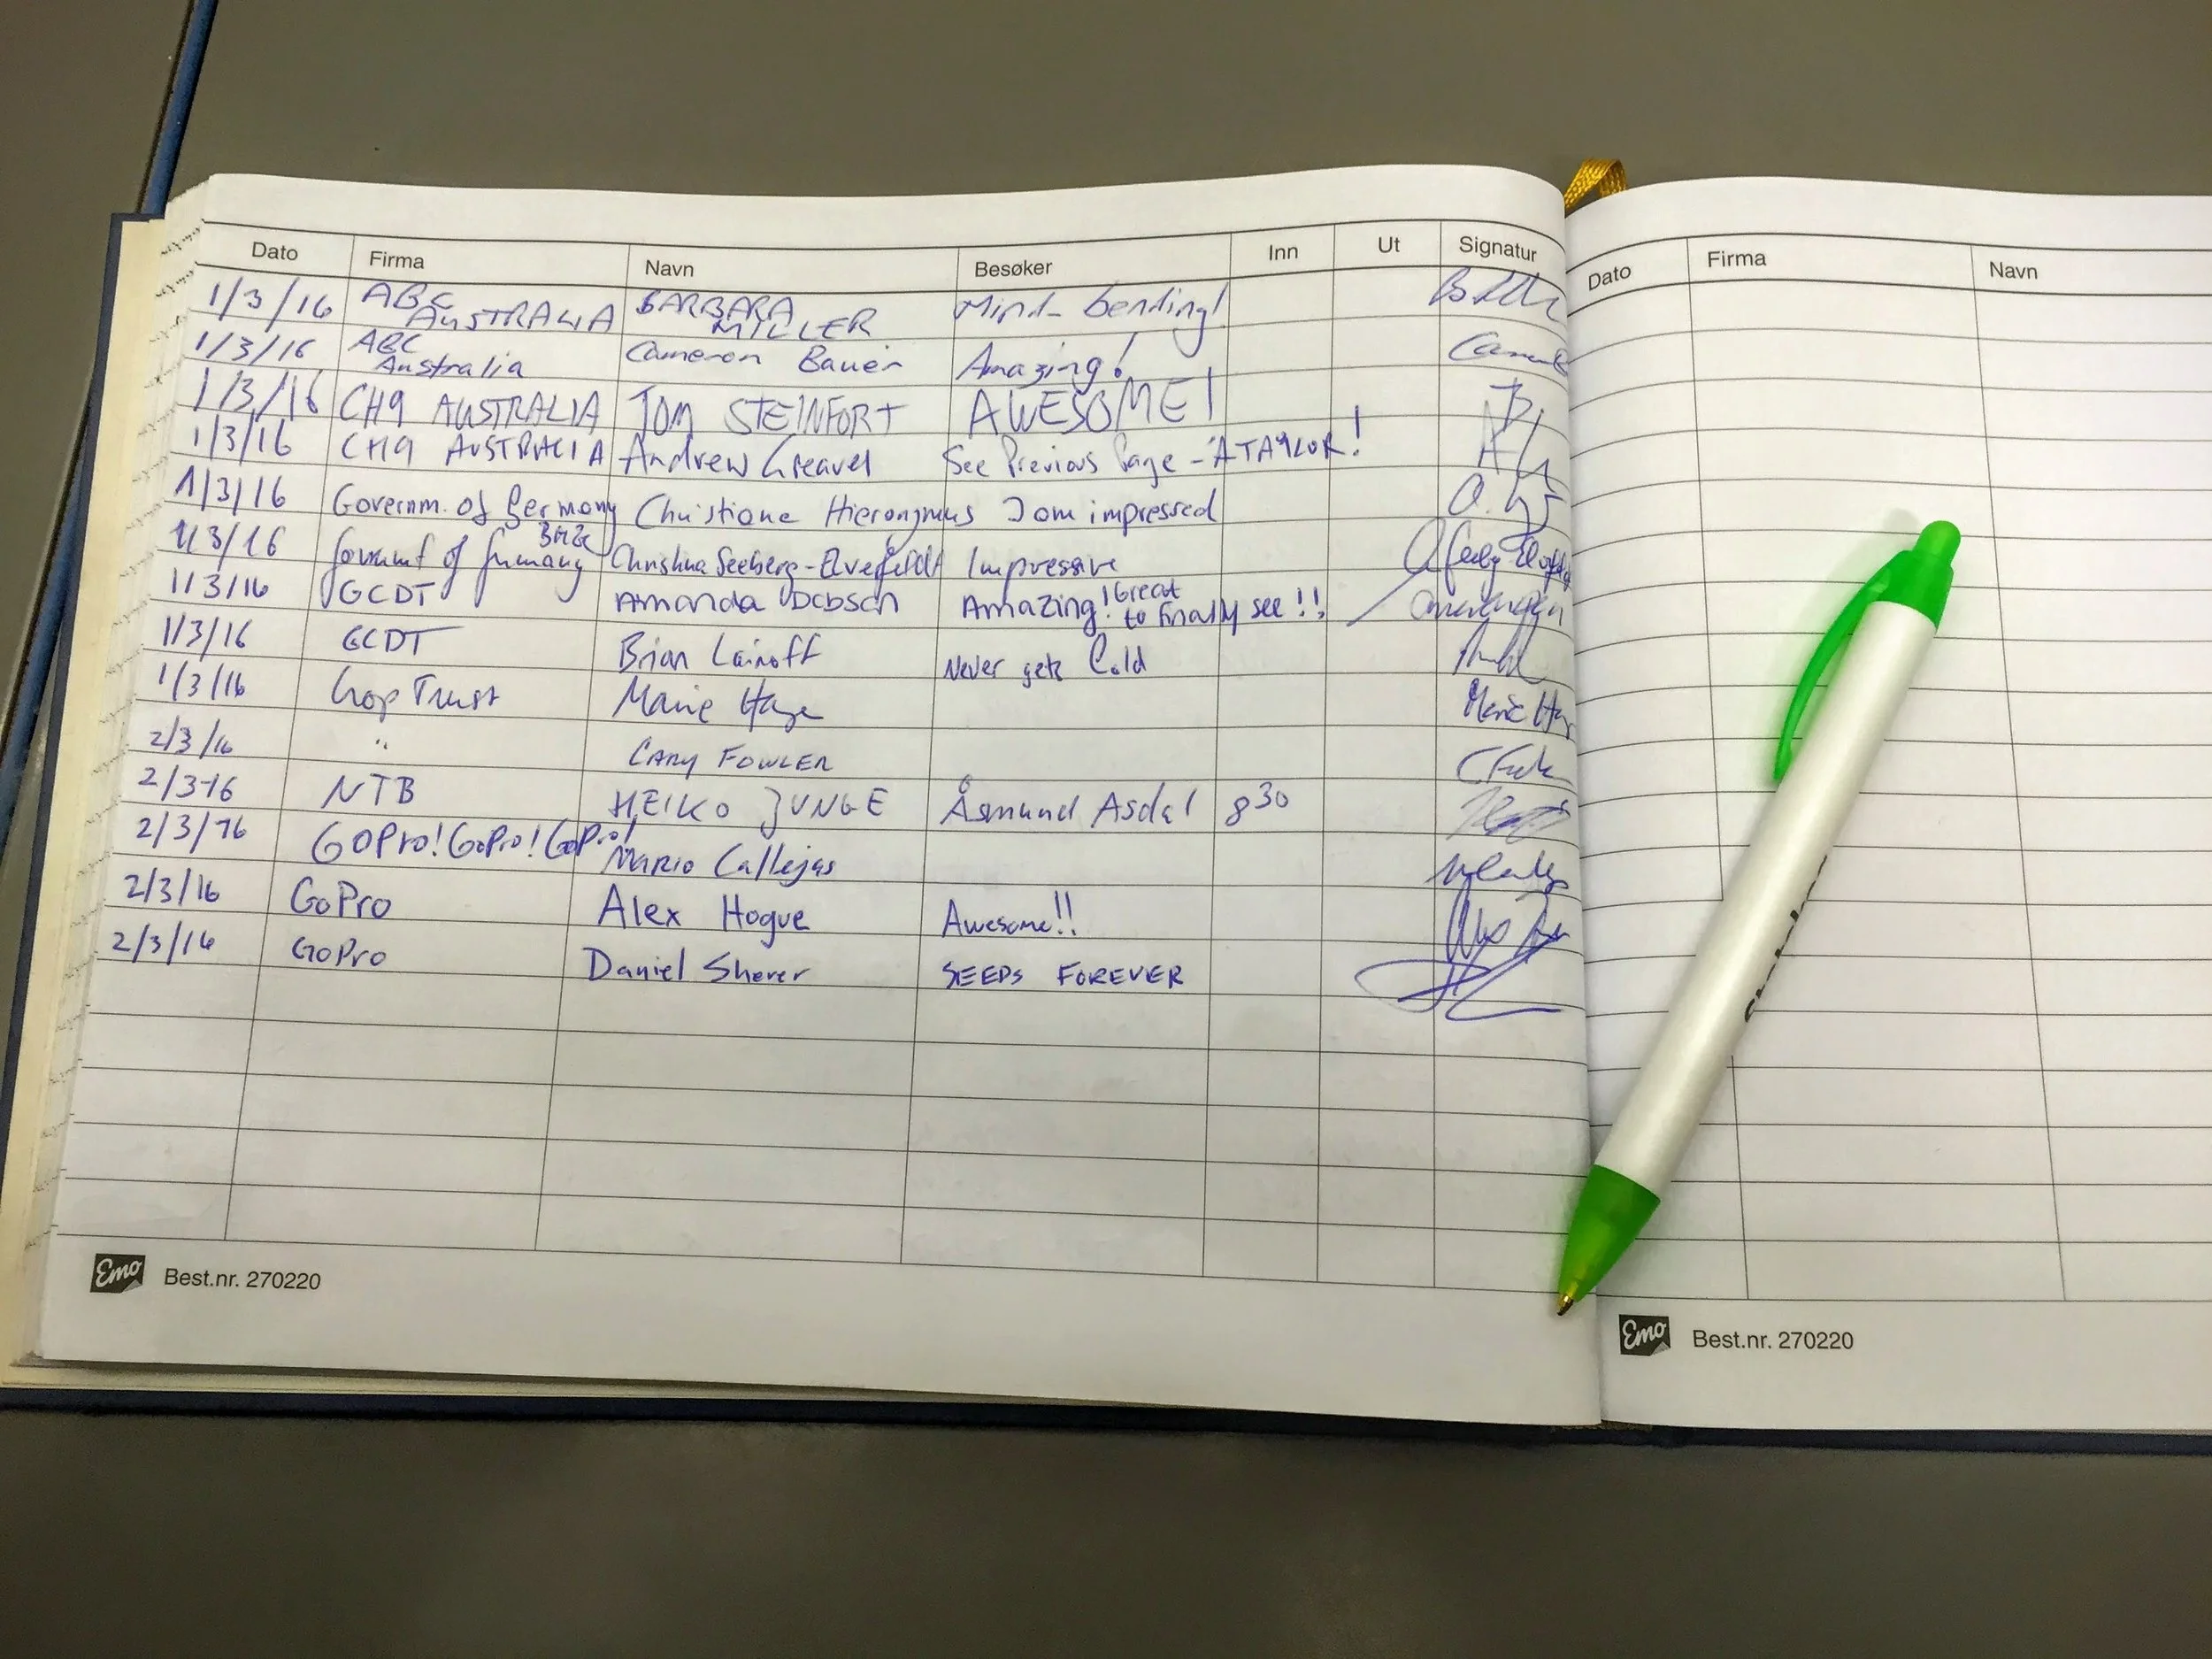 Dato Firma Navn Besøker Inn Ut Signatur
1/3/16 ABC AUSTRALIA BARBARA MILLER Mind-bending!
1/3/16 ABC Australia Cameron Bauer Amazing!
1/3/16 CH9 AUSTRALIA TOM STEINFORT AWESOME!
1/3/16 CH9 AUSTRALIA Andrew Greavel See Previous Page - A TAYLOR!
1/3/16 Governm. of Germany Christiane Hieronymus I am impressed
1/3/16 of Germany Christina Seeberg-Elverfeldt Impressive
1/3/16 GCDT Amanda Dobson Amazing! Great to finally see!!
1/3/16 GCDT Brian Lainoff Never gets Cold
1/3/16 Crop Trust Marie Haga Marie
2/3/16 " CARY FOWLER
2/3-16 NTB HEIKO JUNGE Åsmund Asdal 8 30
2/3/16 GOPro! GoPro! GoPro! MARIO Callejas
2/3/16 GoPro Alex Hogue Awesome!!
2/3/16 GoPro Daniel Sherer SEEDS FOREVER
Emo Best.nr. 270220
Dato Firma Navn
Emo Best.nr. 270220